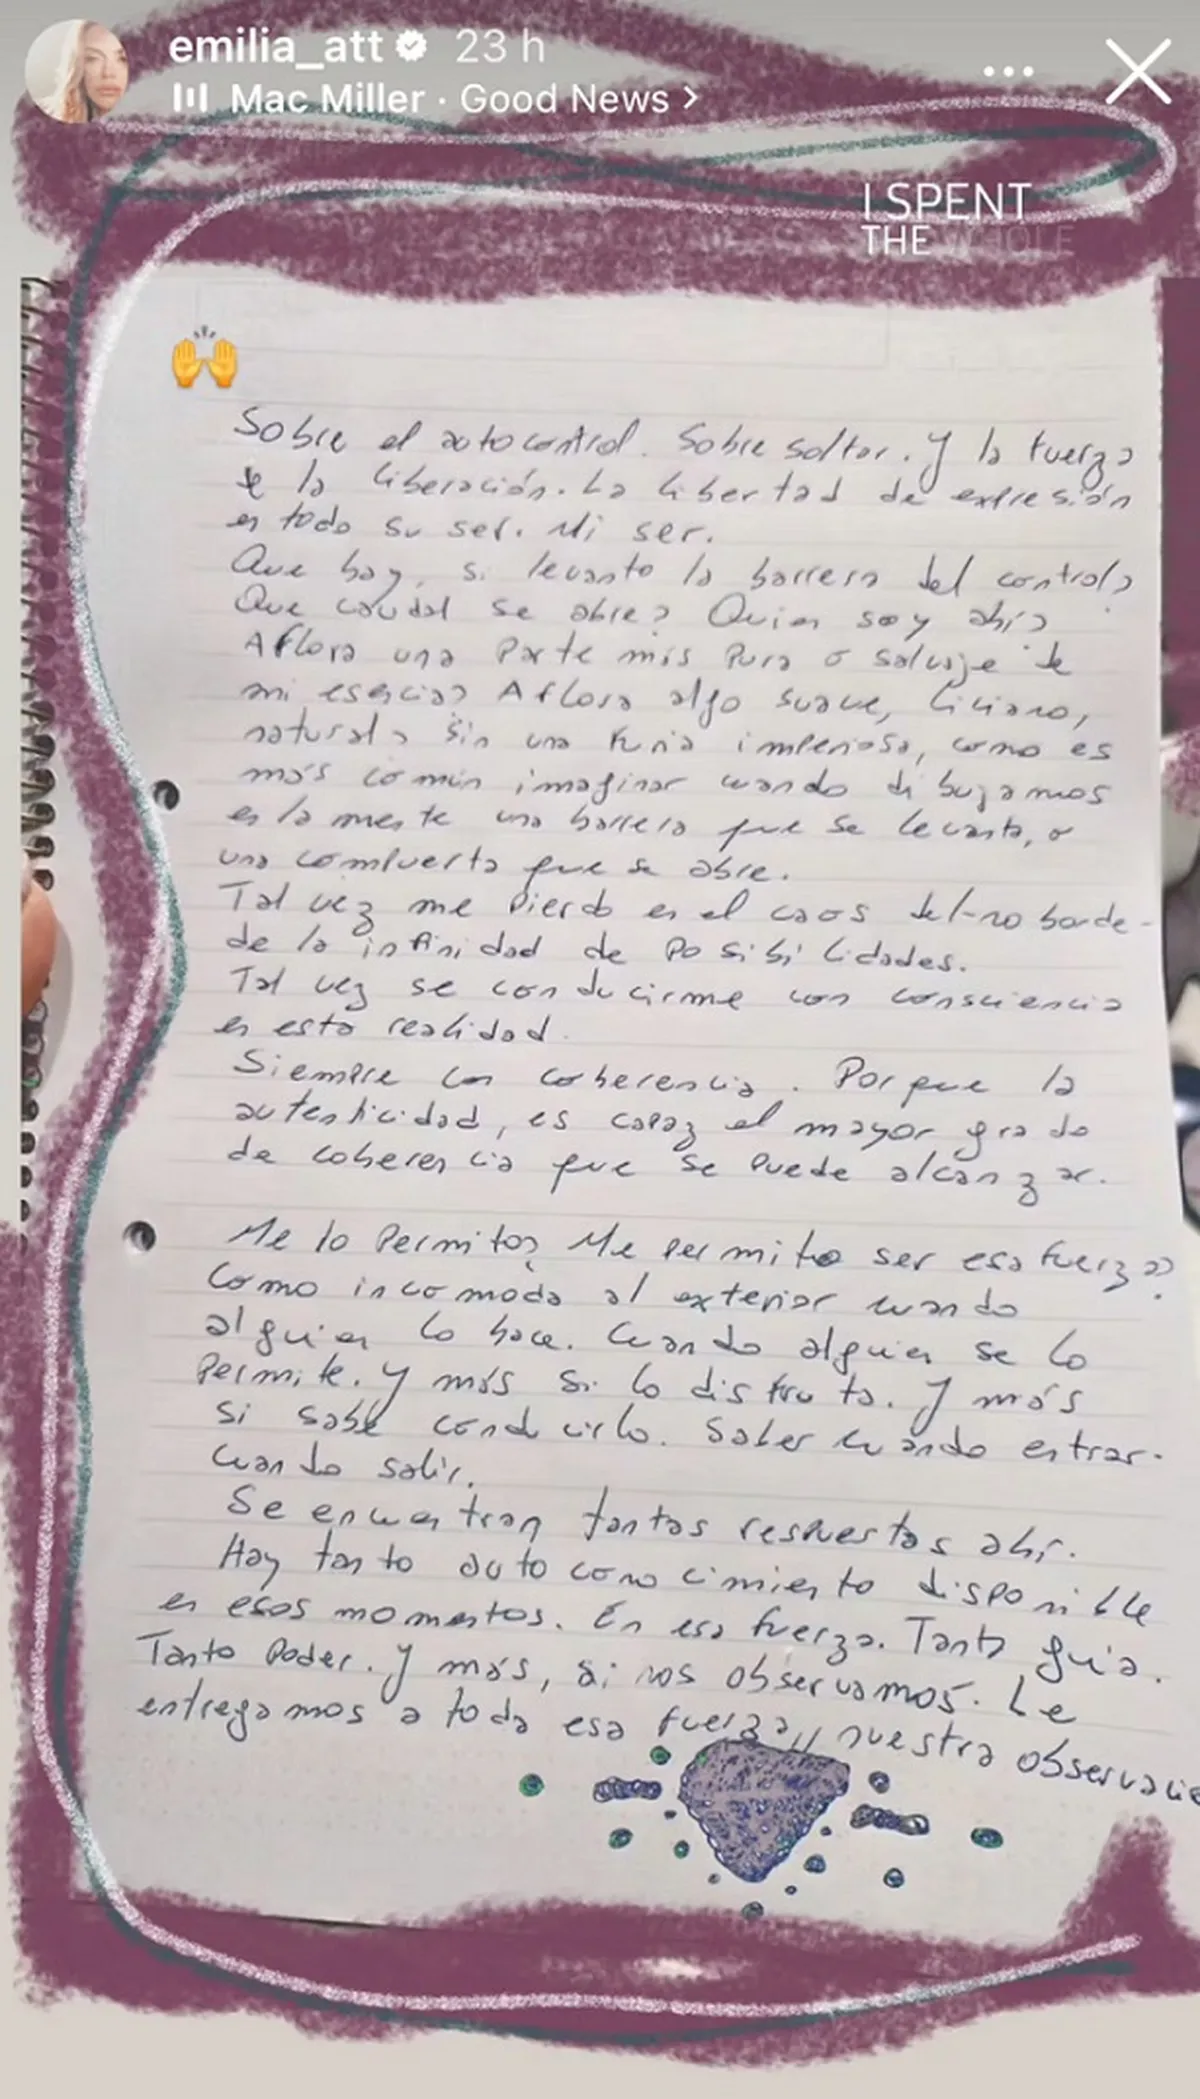 emilia_att 23 h
Mac Miller · Good News >
I SPENT
THE WHOLE
Sobre el autocontrol. Sobre soltar. Y la fuerza
de la liberación. La libertad de expresión
en todo su ser. Mi ser.
Que hay, si levanto la barrera del control?
Que caudal se abre? Quien soy ahí?
Aflora una parte más pura o salvaje de
mi esencia? Aflora algo suave, liviano,
natural? Sin una furia imperiosa, como es
más común imaginar cuando dibujamos
en la mente una barrera que se levanta, o
una compuerta que se abre.
Tal vez me pierdo en el caos del-no borde-
de la infinidad de posibilidades.
Tal vez se conducirme con consciencia
en esta realidad.
Siempre con coherencia. Porque la
autenticidad, es capaz el mayor grado
de coherencia que se puede alcanzar.
Me lo permito? Me permito ser esa fuerza?
Como incomoda al exterior cuando
alguien lo hace. Cuando alguien se lo
permite. Y más si lo disfruta. Y más
si sabe conducirlo. Saber cuando entrar.
Cuando salir.
Se encuentran tantas respuestas ahí.
Hay tanto autoconocimiento disponible
en esos momentos. En esa fuerza. Tanta guía.
Tanto poder. Y más, si nos observamos. Le
entregamos a toda esa fuerza,, nuestra